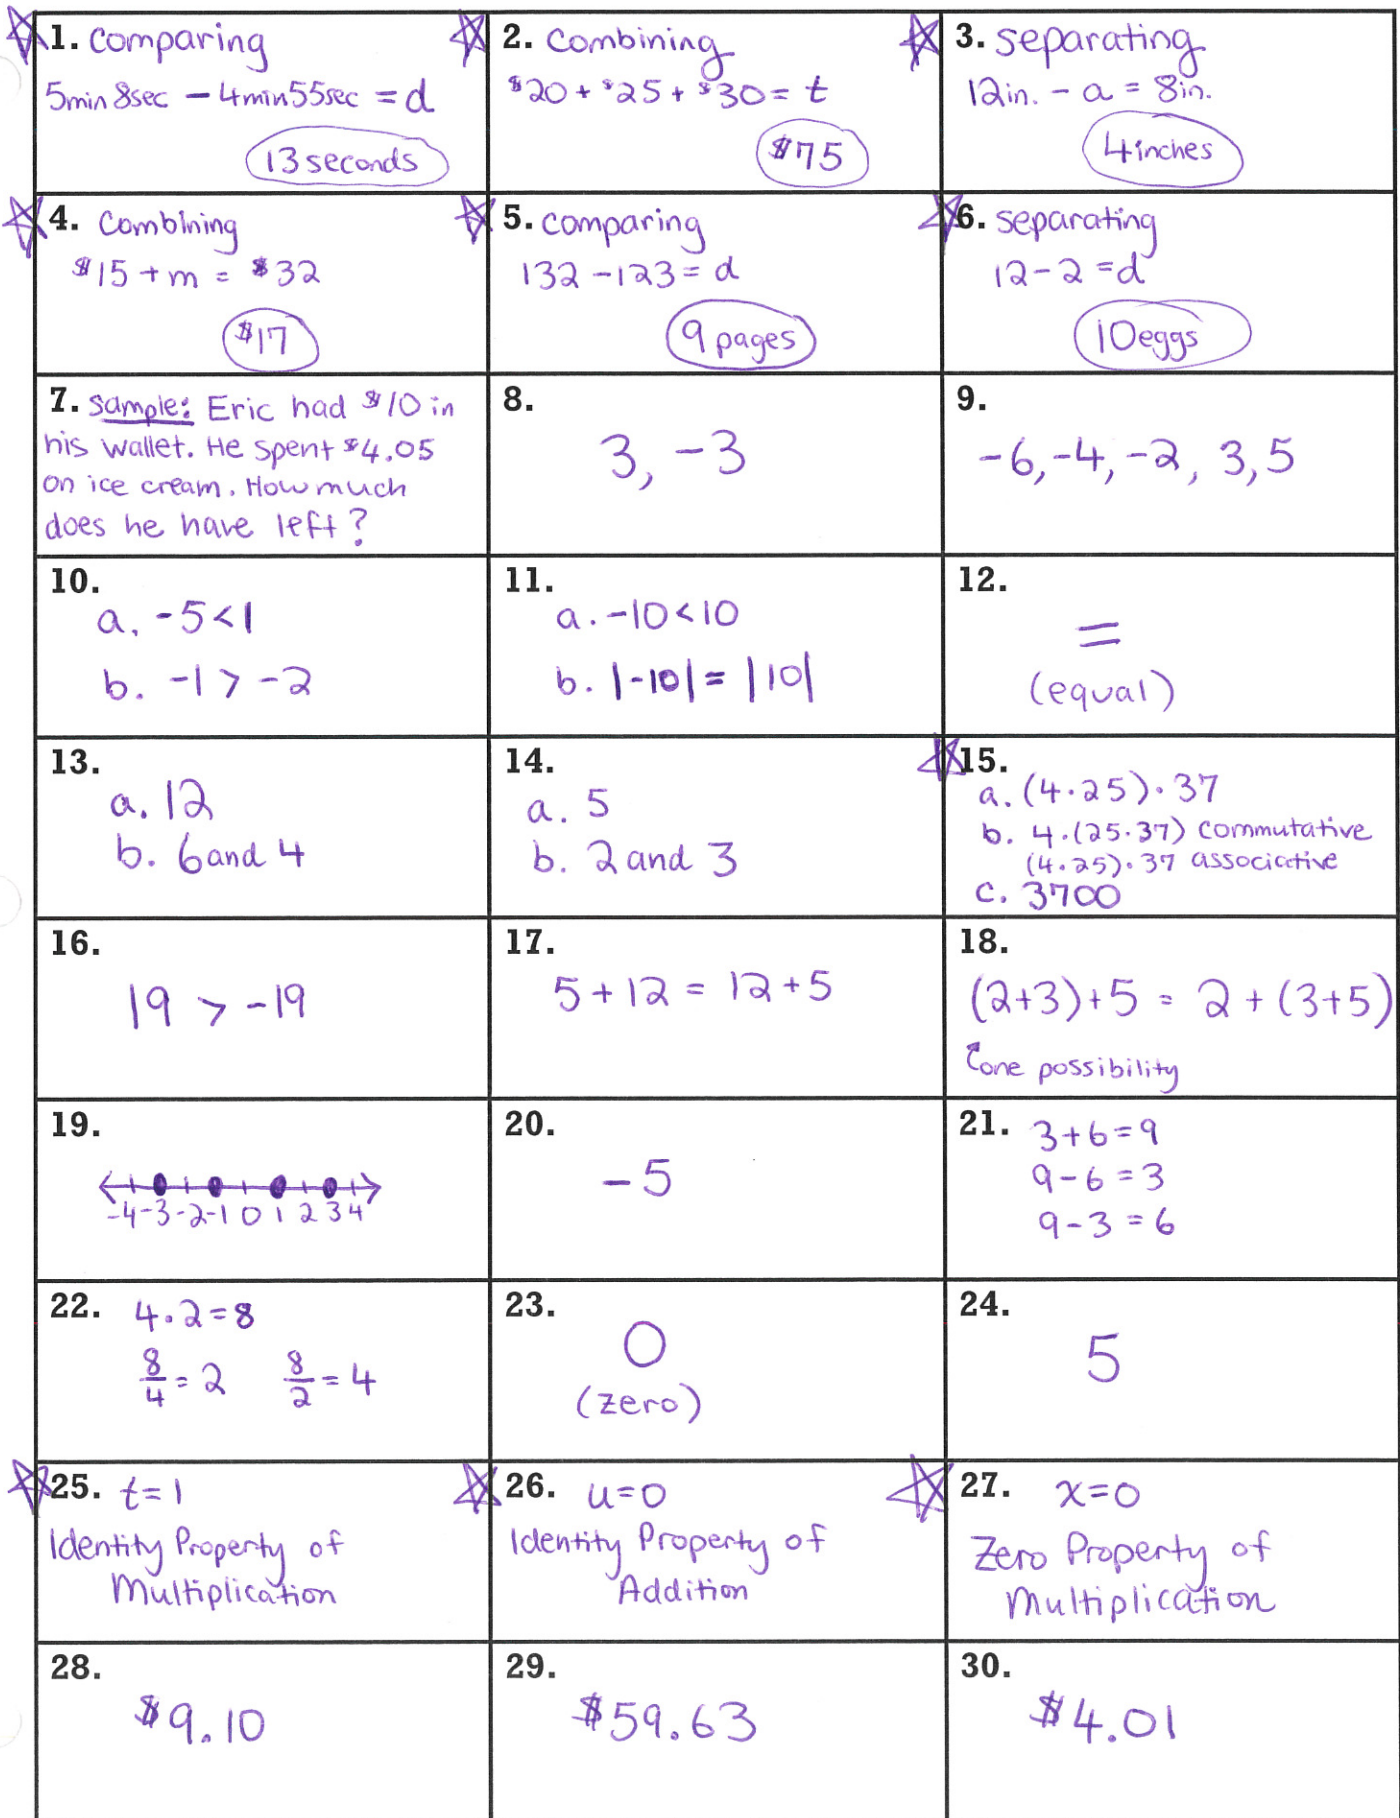 1. Comparing
5min 8sec - 4min 55sec = d
13 seconds
2. Combining
$20 + $25 + $30 = t
$75
3. Separating
12in. - a = 8in.
4 inches
4. Combining
$15 + m = $32
$17
5. Comparing
132 - 123 = d
9 pages
6. separating
12 - 2 = d
10 eggs
7. Sample: Eric had $10 in
his wallet. He spent $4.05
on ice cream. How much
does he have left?
8.
3, -3
9.
-6, -4, -2, 3, 5
10.
a. -5 < 1
b. -1 > -2
11.
a. -10 < 10
b. |-10| = |10|
12.
=
(equal)
13.
a. 12
b. 6 and 4
14.
a. 5
b. 2 and 3
15.
a. (4·25)·37
b. 4·(25·37) commutative
(4·25)·37 associative
c. 3700
16.
19 > -19
17.
5 + 12 = 12 + 5
18.
(2+3)+5 = 2 + (3+5)
one possibility
19.
-4 -3 -2 -1 0 1 2 3 4
20.
-5
21. 3+6=9
9-6=3
9-3=6
22. 4·2=8
8/4 = 2 8/2 = 4
23.
0
(zero)
24.
5
25. t=1
Identity Property of
Multiplication
26. u=0
Identity Property of
Addition
27. x=0
Zero Property of
Multiplication
28.
$9.10
29.
$59.63
30.
$4.01